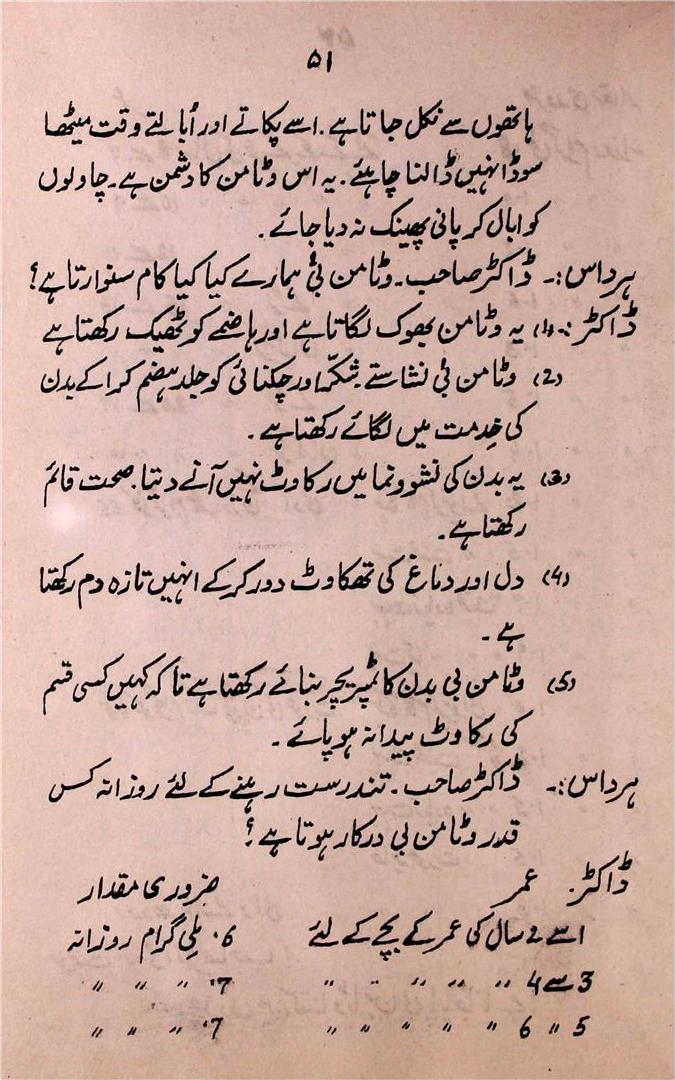 ۵۱
ہاتھوں سے نکل جاتا ہے۔ اسے پکاتے اور اُبالتے وقت میٹھا
سوڈا نہیں ڈالنا چاہئے۔ یہ اس وٹامن کا دشمن ہے۔ چاولوں
کو ابال کر پانی پھینک نہ دیا جائے۔
ہرداس:۔ ڈاکٹر صاحب۔ وٹامن بی ہمارے کیا کیا کام سنوارتا ہے؟
ڈاکٹر:۔ (1) یہ وٹامن بھوک لگاتا ہے اور ہاضمے کو ٹھیک رکھتا ہے
(2) وٹامن بی نشاستے شکّر اور چکنائی کو جلد ہضم کرا کے بدن
کی خدمت میں لگائے رکھتا ہے۔
(3) یہ بدن کی نشوونما میں رکاوٹ نہیں آنے دیتا۔ صحت قائم
رکھتا ہے۔
(4) دل اور دماغ کی تھکاوٹ دور کر کے انہیں تازہ دم رکھتا
ہے۔
(5) وٹامن بی بدن کا ٹمپریچر بنائے رکھتا ہے تا کہ کہیں کسی قسم
کی رکاوٹ پیدا نہ ہو پائے۔
ہرداس:۔ ڈاکٹر صاحب۔ تندرست رہنے کے لئے روزانہ کس
قدر وٹامن بی درکار ہوتا ہے؟
ڈاکٹر۔ عمر ضروری مقدار
1 سے 2 سال کی عمر کے بچے کے لئے 6۔ ملی گرام روزانہ
3 سے 4 " " " " " " 7۔ " " "
5 " 6 " " " " " 7۔ " " "